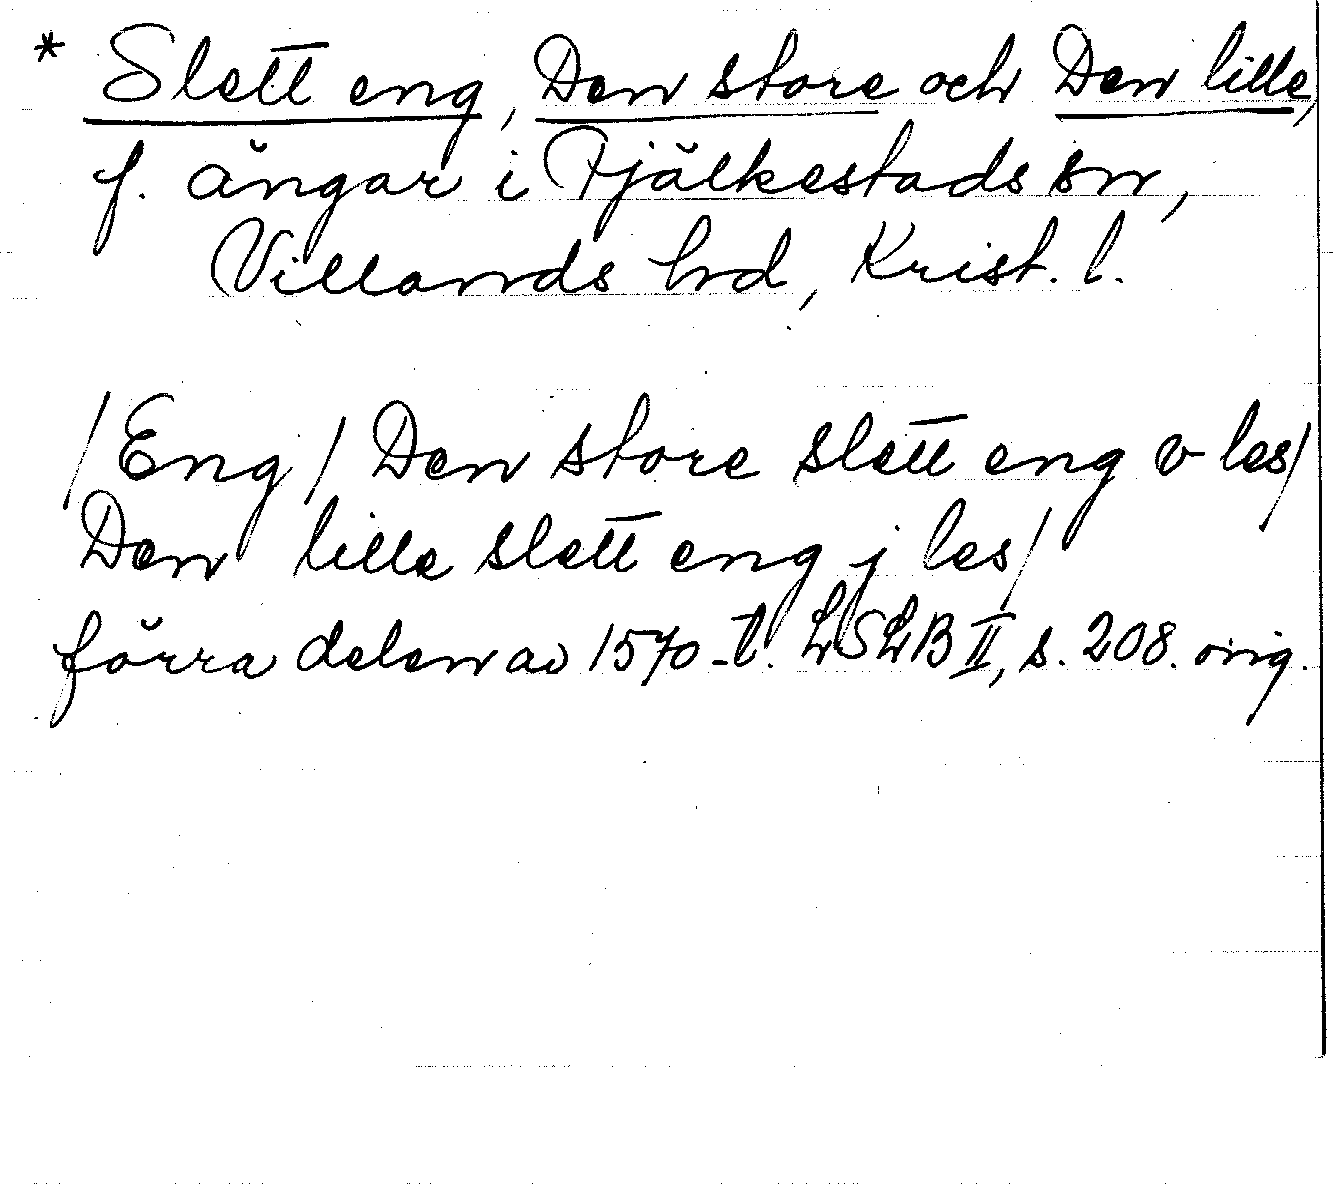 * Slett eng, Den store och Den lille,
f. ängar i Fjälkestads sn,
Villands hrd, Krist. l.
/Eng/ Den store slett eng v les/
Den lille slett eng j les/
förra delen av 1570-t. LSLB II, s. 208. orig.